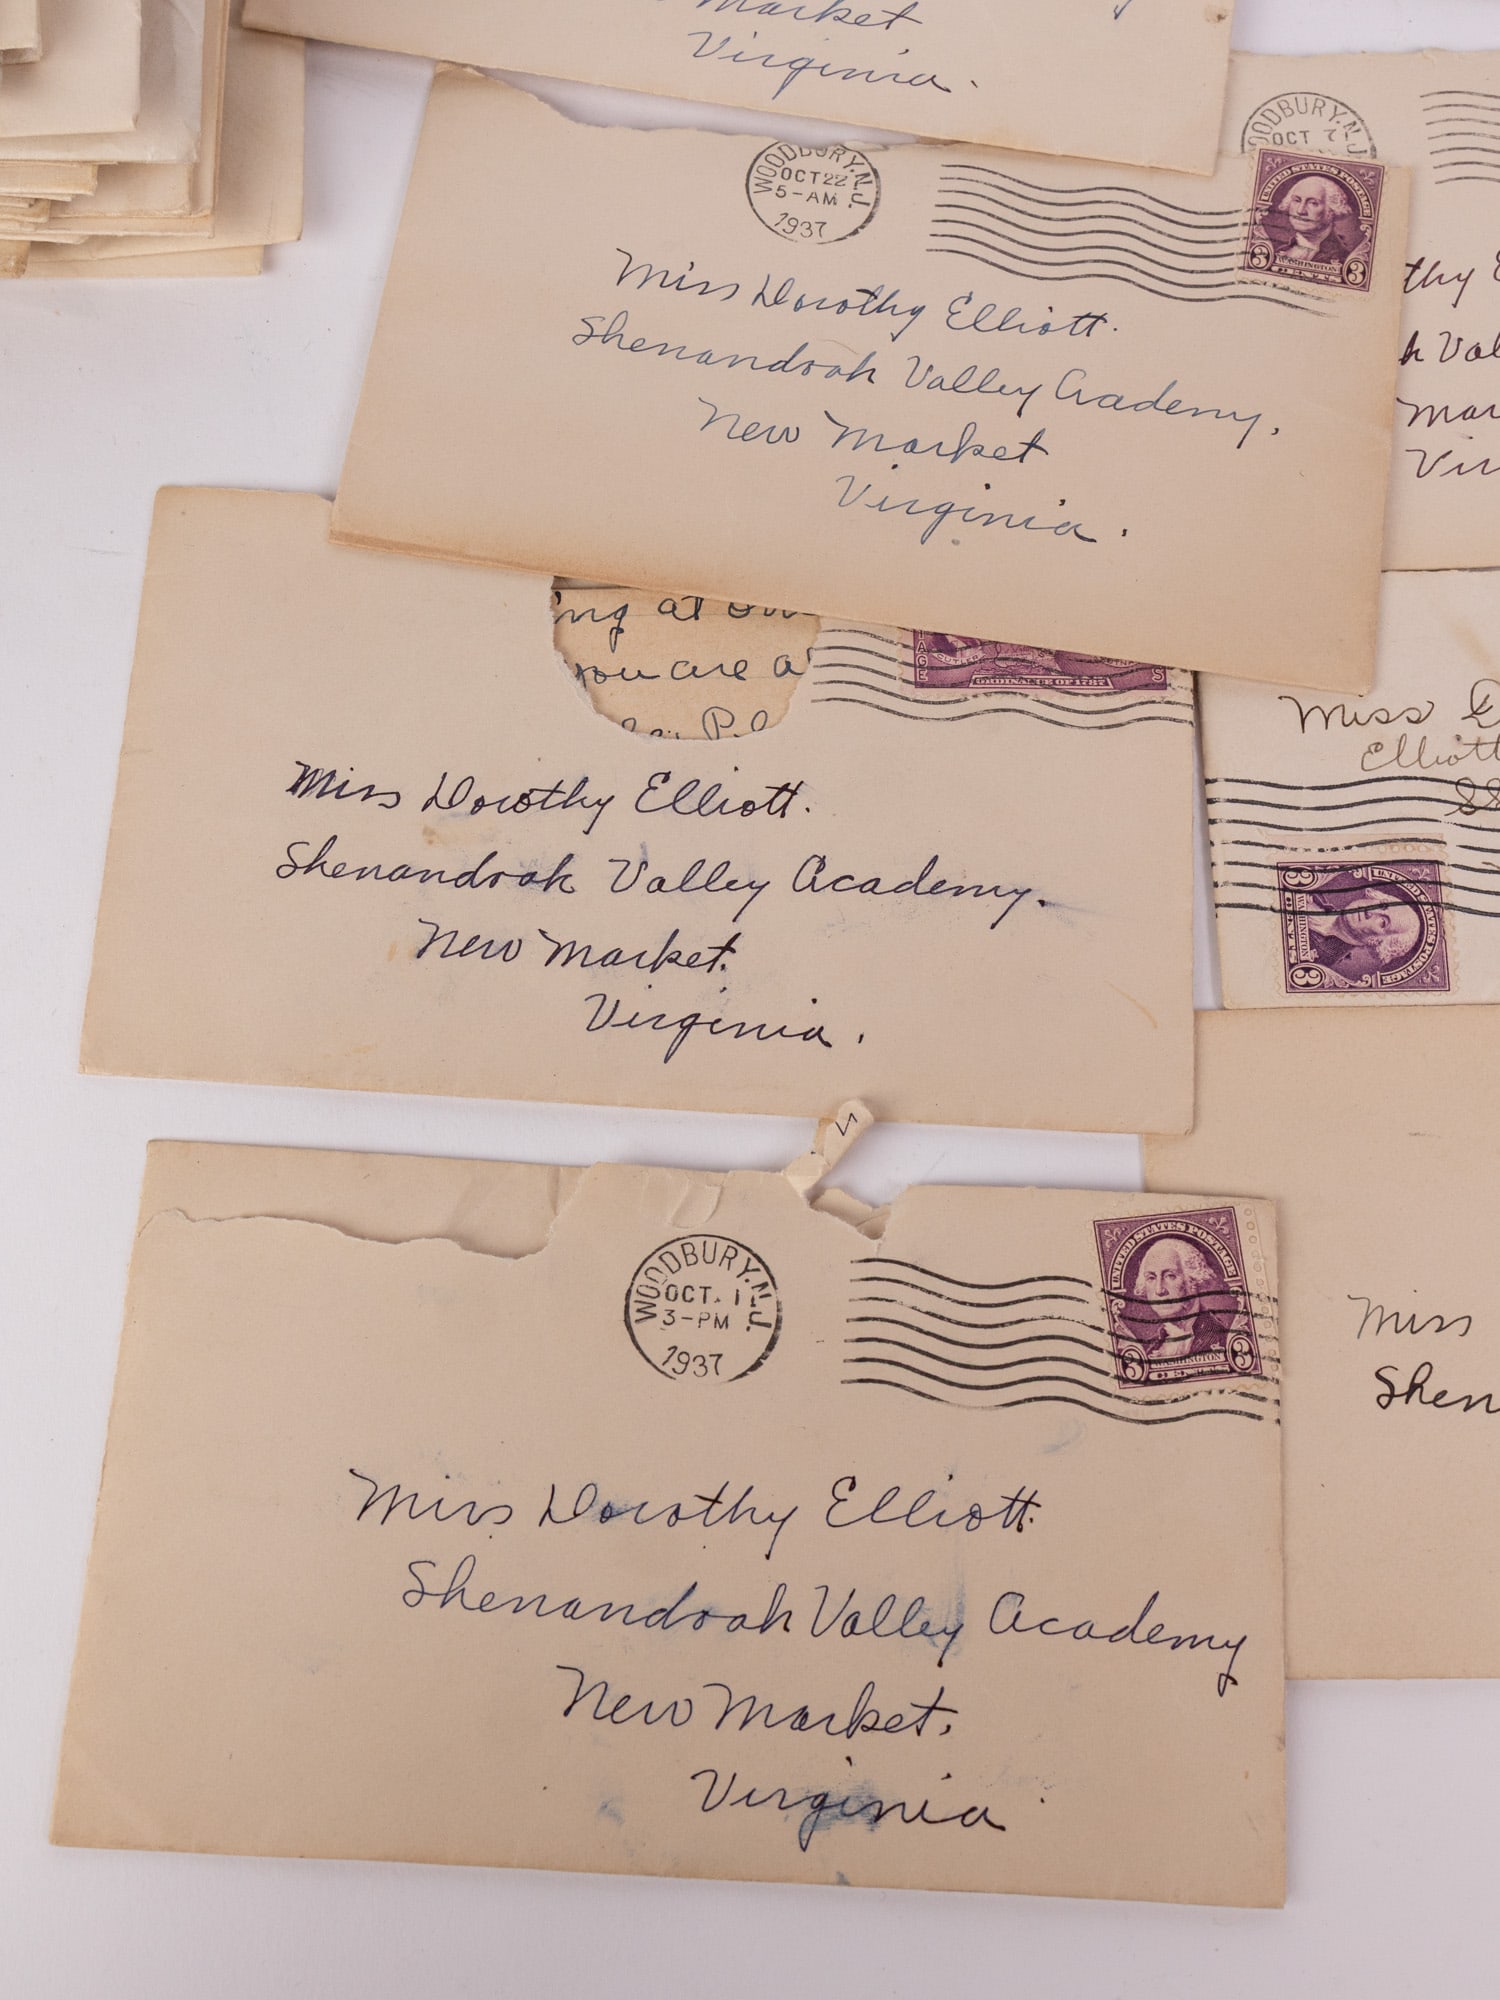 Market
Virginia.
WOODBURY, N.J.
OCT 22
5-AM
1937
UNITED STATES POSTAGE
3 WASHINGTON 3
CENTS
Miss Dorothy Elliott.
Shenandoah Valley Academy,
New Market
Virginia.
WOODBURY, N.J.
OCT 7
thy E
h Val
Mar
Vir
ing at
you are a
CUTLER
ORDINANCE OF 1787
Miss Dorothy Elliott.
Shenandoah Valley Academy.
New Market.
Virginia.
Miss D
Elliott
UNITED STATES POSTAGE
3 WASHINGTON 3
CENTS
WOODBURY, N.J.
OCT. 1
3-PM
1937
UNITED STATES POSTAGE
3 WASHINGTON 3
CENTS
Miss Dorothy Elliott.
Shenandoah Valley Academy
New Market.
Virginia
Miss
Shen